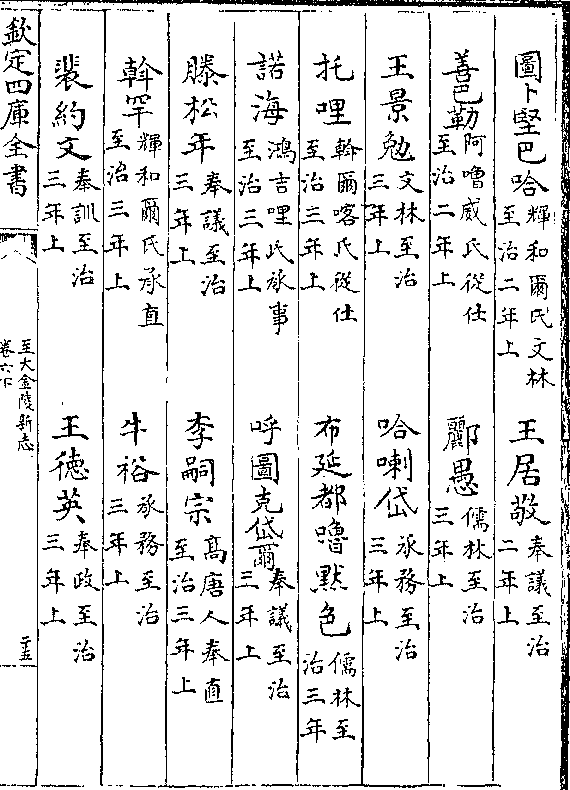 圖卜堅巴哈輝和爾氏文林至治二年上　王居敬奉議至治二年上
善巴勒阿嚕威氏從仕至治二年上　酈愚儒林至治三年上
王景勉文林至治三年上　哈喇岱承務至治三年上
托哩斡爾喀氏從仕至治三年上　布延都嚕默色儒林至治三年
諾海鴻吉哩氏承事至治三年上　呼圖克岱爾奉議至治三年上
滕松年奉議至治三年上　李嗣宗高唐人奉直至治三年上
斡罕輝和爾氏承直至治三年上　牛裕承務至治三年上
裴約文奉訓至治三年上　王德英奉政至治三年上
欽定四庫全書　至大金陵新志卷六下　二十五